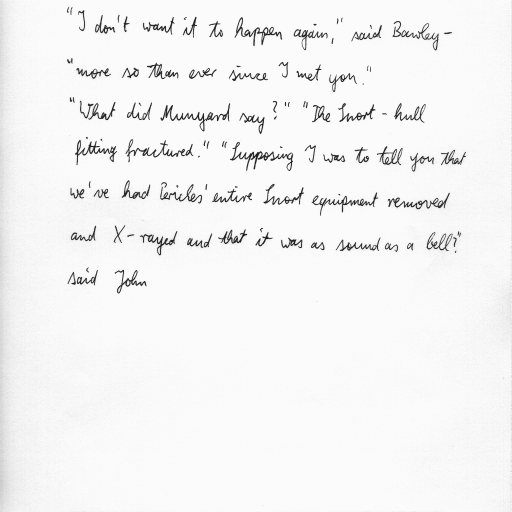 "I don't want it to happen again," said Bawley-
"more so than ever since I met you."
"What did Munyard say?" "The Snort-hull
fitting fractured." "Supposing I was to tell you that
we've had Pericles' entire Snort equipment removed
and X-rayed and that it was as sound as a bell?"
said John